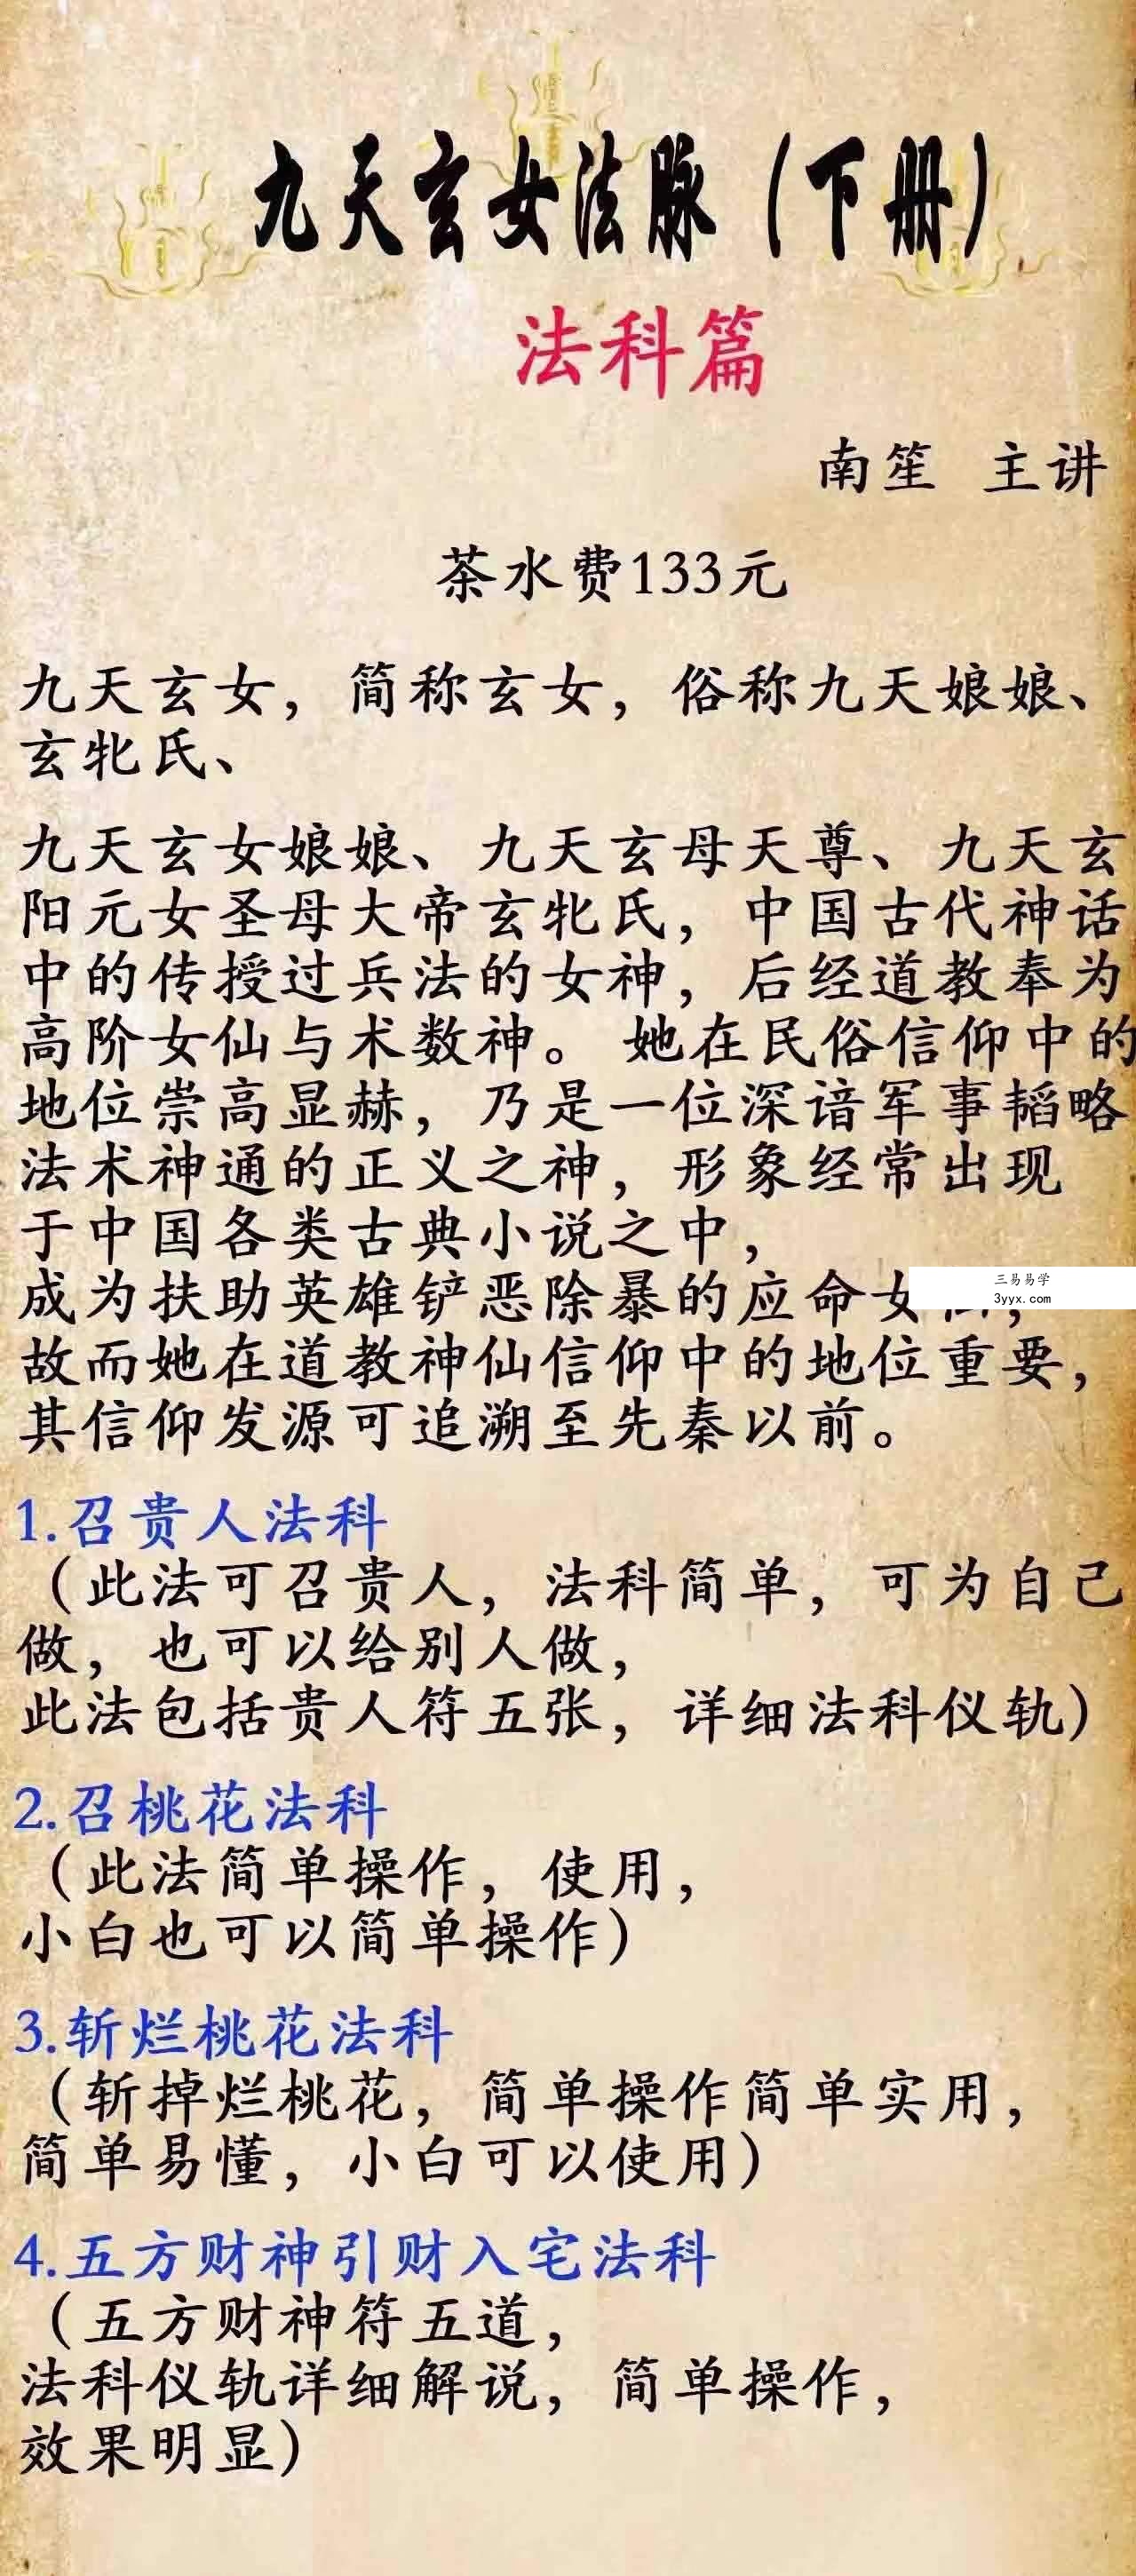 九天玄女法脉（下册）
法科篇
南笙 主讲
茶水费133元
九天玄女，简称玄女，俗称九天娘娘、
玄牝氏、
九天玄女娘娘、九天玄母天尊、九天玄
阳元女圣母大帝玄牝氏，中国古代神话
中的传授过兵法的女神，后经道教奉为
高阶女仙与术数神。她在民俗信仰中的
地位崇高显赫，乃是一位深谙军事韬略
法术神通的正义之神，形象经常出现
于中国各类古典小说之中，
成为扶助英雄铲恶除暴的应命女，
三易易学
3yyx.com
故而她在道教神仙信仰中的地位重要，
其信仰发源可追溯至先秦以前。
1.召贵人法科
（此法可召贵人，法科简单，可为自己
做，也可以给别人做，
此法包括贵人符五张，详细法科仪轨）
2.召桃花法科
（此法简单操作，使用，
小白也可以简单操作）
3.斩烂桃花法科
（斩掉烂桃花，简单操作简单实用，
简单易懂，小白可以使用）
4.五方财神引财入宅法科
（五方财神符五道，
法科仪轨详细解说，简单操作，
效果明显）